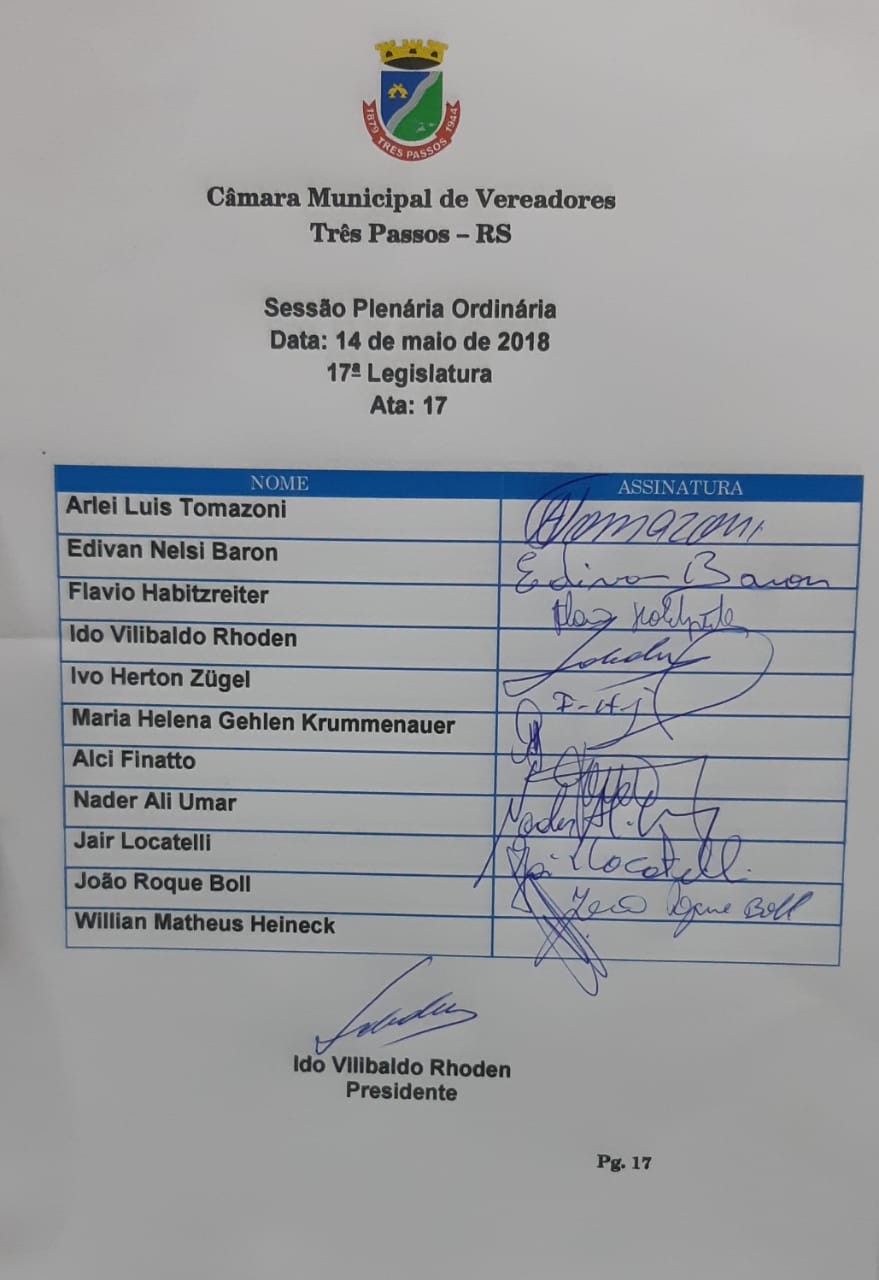 1879 TRES PASSOS 1944
Câmara Municipal de Vereadores
Três Passos – RS
Sessão Plenária Ordinária
Data: 14 de maio de 2018
17ª Legislatura
Ata: 17
NOME ASSINATURA
Arlei Luis Tomazoni Tomazoni
Edivan Nelsi Baron Edivan Baron
Flavio Habitzreiter
Ido Vilibaldo Rhoden
Ivo Herton Zügel
Maria Helena Gehlen Krummenauer
Alci Finatto
Nader Ali Umar Nader
Jair Locatelli Locatelli
João Roque Boll João Roque Boll
Willian Matheus Heineck
Ido Vilibaldo Rhoden
Presidente
Pg. 17